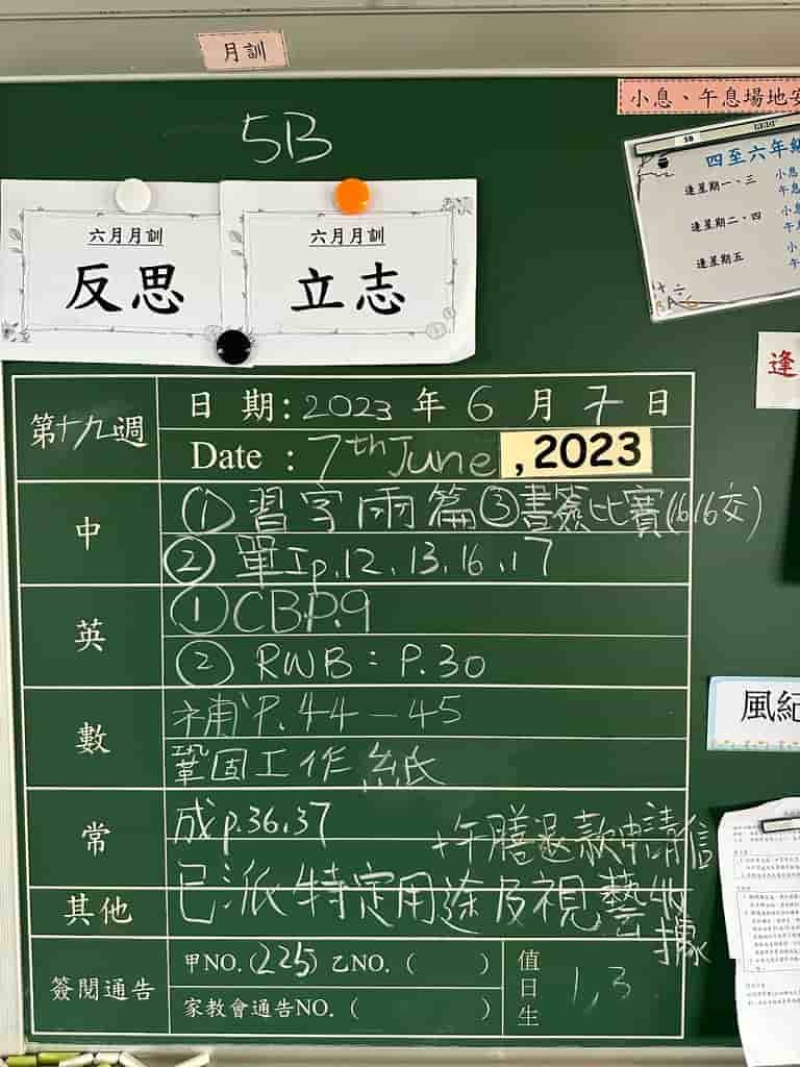 月訓
小息、午息場地安
5B
四至六年級
逢星期一、三
小息
午息
逢星期二、四
小息
午息
逢星期五
六月月訓
反思
六月月訓
立志
逢
第十九週
日 期: 2023 年 6 月 7 日
Date : 7th June , 2023
中
① 習字雨篇 ③書簽比賽(16/6交)
② 單工p.12、13、16、17
英
① CB P.9
② RWB : P.30
風紀
數
補 P.44-45
鞏固工作紙
常
成 p.36、37
+午膳退款申請信
其他
已派特定用途及視藝收據
簽閱通告
甲NO.(225) 乙NO. ( )
家教會通告NO. ( )
值日生
1, 3